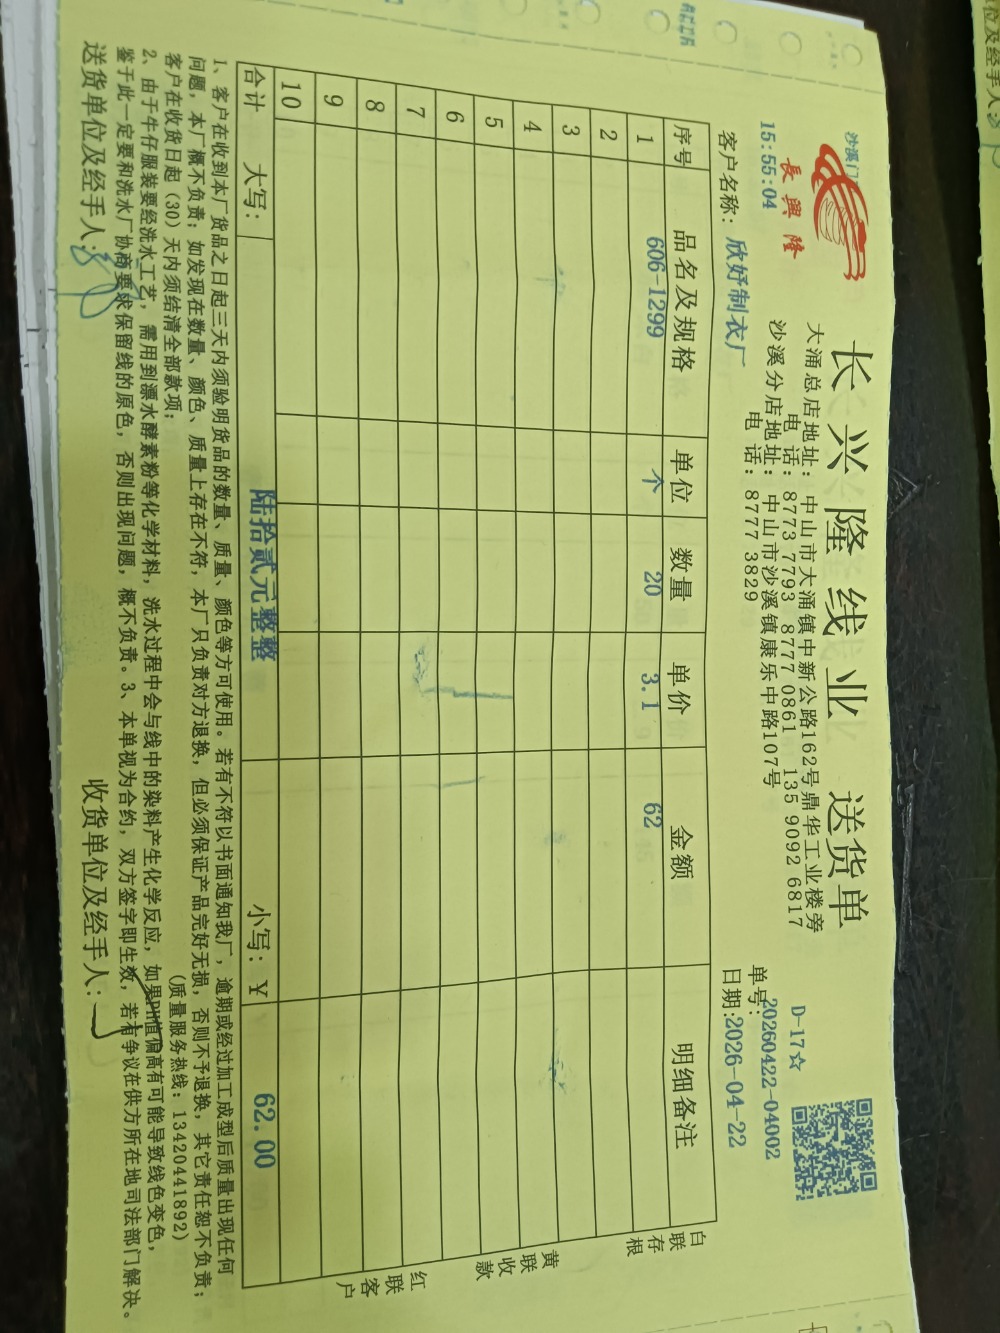 沙溪门
長興隆
15:55:04
长兴隆线业 送货单
大涌总店地址：中山市大涌镇中新公路162号鼎华工业楼旁
电 话：8773 7793 8777 0861 135 9092 6817
沙溪分店地址：中山市沙溪镇康乐中路107号
电 话：8777 3829
D-17☆
单号：20260422-04002
客户名称：欣妤制衣厂
日期：2026-04-22
序号 品名及规格 单位 数量 单价 金额 明细备注
1 606-1299 个 20 3.1 62
2
3
4
5
6
7
8
9
10
合计 大写： 陆拾贰元整整 小写：￥ 62.00
白联存根
黄联收款
红联客户
1、客户在收到本厂货品之日起三天内须验明货品的数量、质量、颜色等方可使用。若有不符以书面通知我厂，逾期或经过加工成型后质量出现任何
问题，本厂概不负责；如发现在数量、颜色、质量上存在不符，本厂只负责对方退换，但必须保证产品完好无损，否则不予退换，其它责任恕不负责；
客户在收货日起（30）天内须结清全部款项；
（质量服务热线：13420441892）
2、由于牛仔服装要经洗水工艺，需用到漂水酵素粉等化学材料，洗水过程中会与线中的染料产生化学反应，如果PH值偏高有可能导致线色变色，
鉴于此一定要和洗水厂协商要求保留线的原色，否则出现问题，概不负责。3、本单视为合约，双方签字即生效，若有争议在供方所在地司法部门解决。
送货单位及经手人：
收货单位及经手人：